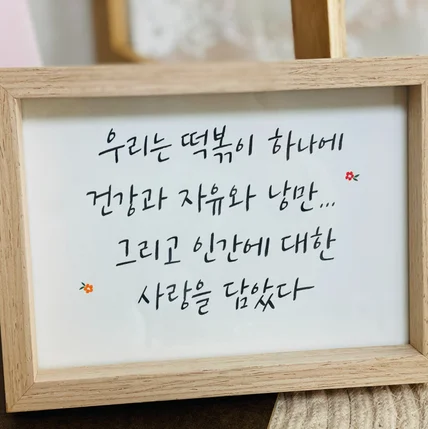 우리는 떡볶이 하나에
건강과 자유와 낭만...
그리고 인간에 대한
사랑을 담았다